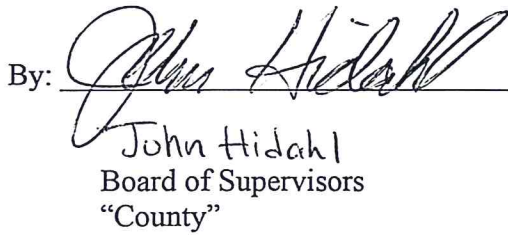 By: John Hidahl
John Hidahl
Board of Supervisors
“County”